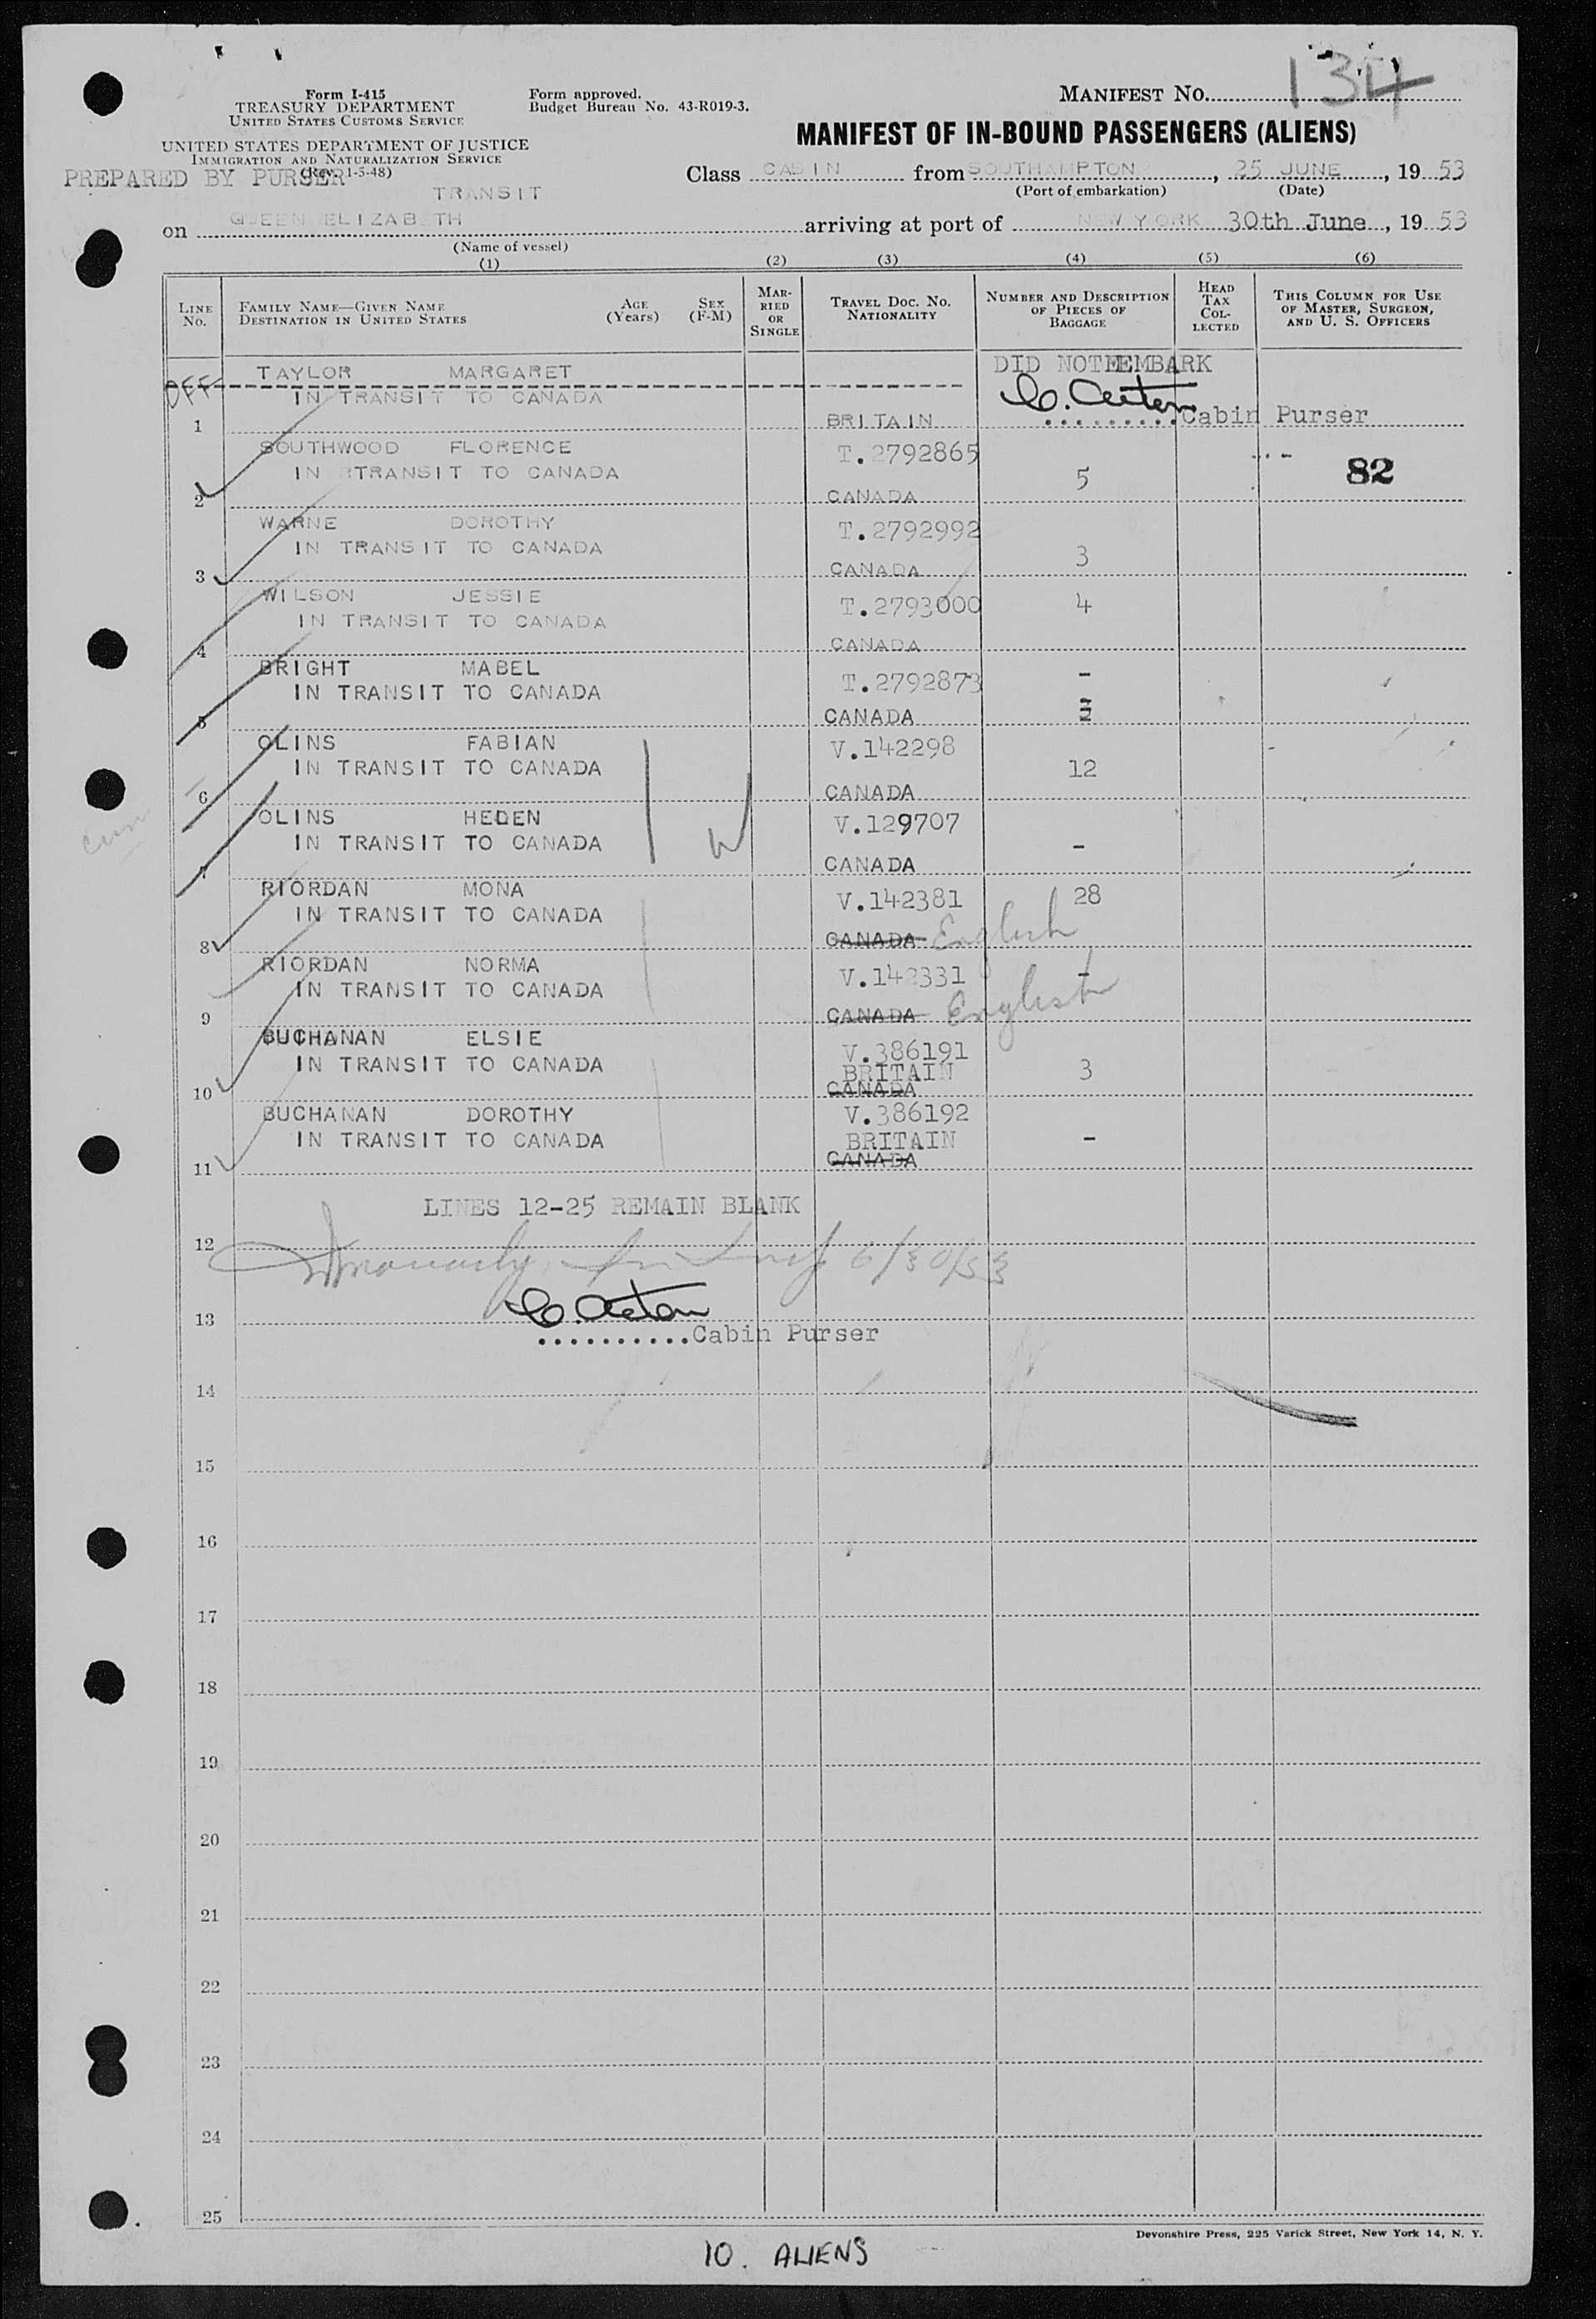 134
Form I-415
TREASURY DEPARTMENT
UNITED STATES CUSTOMS SERVICE
Form approved.
Budget Bureau No. 43-R019-3.
MANIFEST NO.
UNITED STATES DEPARTMENT OF JUSTICE
IMMIGRATION AND NATURALIZATION SERVICE
(Rev. 1-5-48)
PREPARED BY PURSER
TRANSIT
MANIFEST OF IN-BOUND PASSENGERS (ALIENS)
Class CABIN from SOUTHAMPTON, 25 JUNE, 19 53
(Port of embarkation) (Date)
on QUEEN ELIZABETH arriving at port of NEW YORK 30th June, 19 53
(Name of vessel)
(1) (2) (3) (4) (5) (6)
LINE No. FAMILY NAME—GIVEN NAME DESTINATION IN UNITED STATES AGE (Years) SEX (F-M) MARRIED OR SINGLE TRAVEL DOC. NO. NATIONALITY NUMBER AND DESCRIPTION OF PIECES OF BAGGAGE HEAD TAX COLLECTED THIS COLUMN FOR USE OF MASTER, SURGEON, AND U. S. OFFICERS
OFF TAYLOR MARGARET DID NOT EMBARK
IN TRANSIT TO CANADA
1 BRITAIN Cabin Purser
SOUTHWOOD FLORENCE T.2792865
IN TRANSIT TO CANADA 5 82
2 CANADA
WARNE DOROTHY T.2792992
IN TRANSIT TO CANADA 3
3 CANADA
WILSON JESSIE T.2793000 4
IN TRANSIT TO CANADA
4 CANADA
BRIGHT MABEL T.2792873 -
IN TRANSIT TO CANADA
5 CANADA
OLINS FABIAN V.142298
IN TRANSIT TO CANADA 12
6 CANADA
OLINS HELEN V.129707
IN TRANSIT TO CANADA -
7 CANADA
RIORDAN MONA V.142381 28
IN TRANSIT TO CANADA
8 CANADA English
RIORDAN NORMA V.142331 -
IN TRANSIT TO CANADA
9 CANADA English
BUCHANAN ELSIE V.386191
IN TRANSIT TO CANADA BRITAIN 3
10 CANADA
BUCHANAN DOROTHY V.386192
IN TRANSIT TO CANADA BRITAIN -
11 CANADA
LINES 12-25 REMAIN BLANK
12
6/30/53
13
Cabin Purser
14
15
16
17
18
19
20
21
22
23
24
25
Devonshire Press, 225 Varick Street, New York 14, N. Y.
10. ALIENS